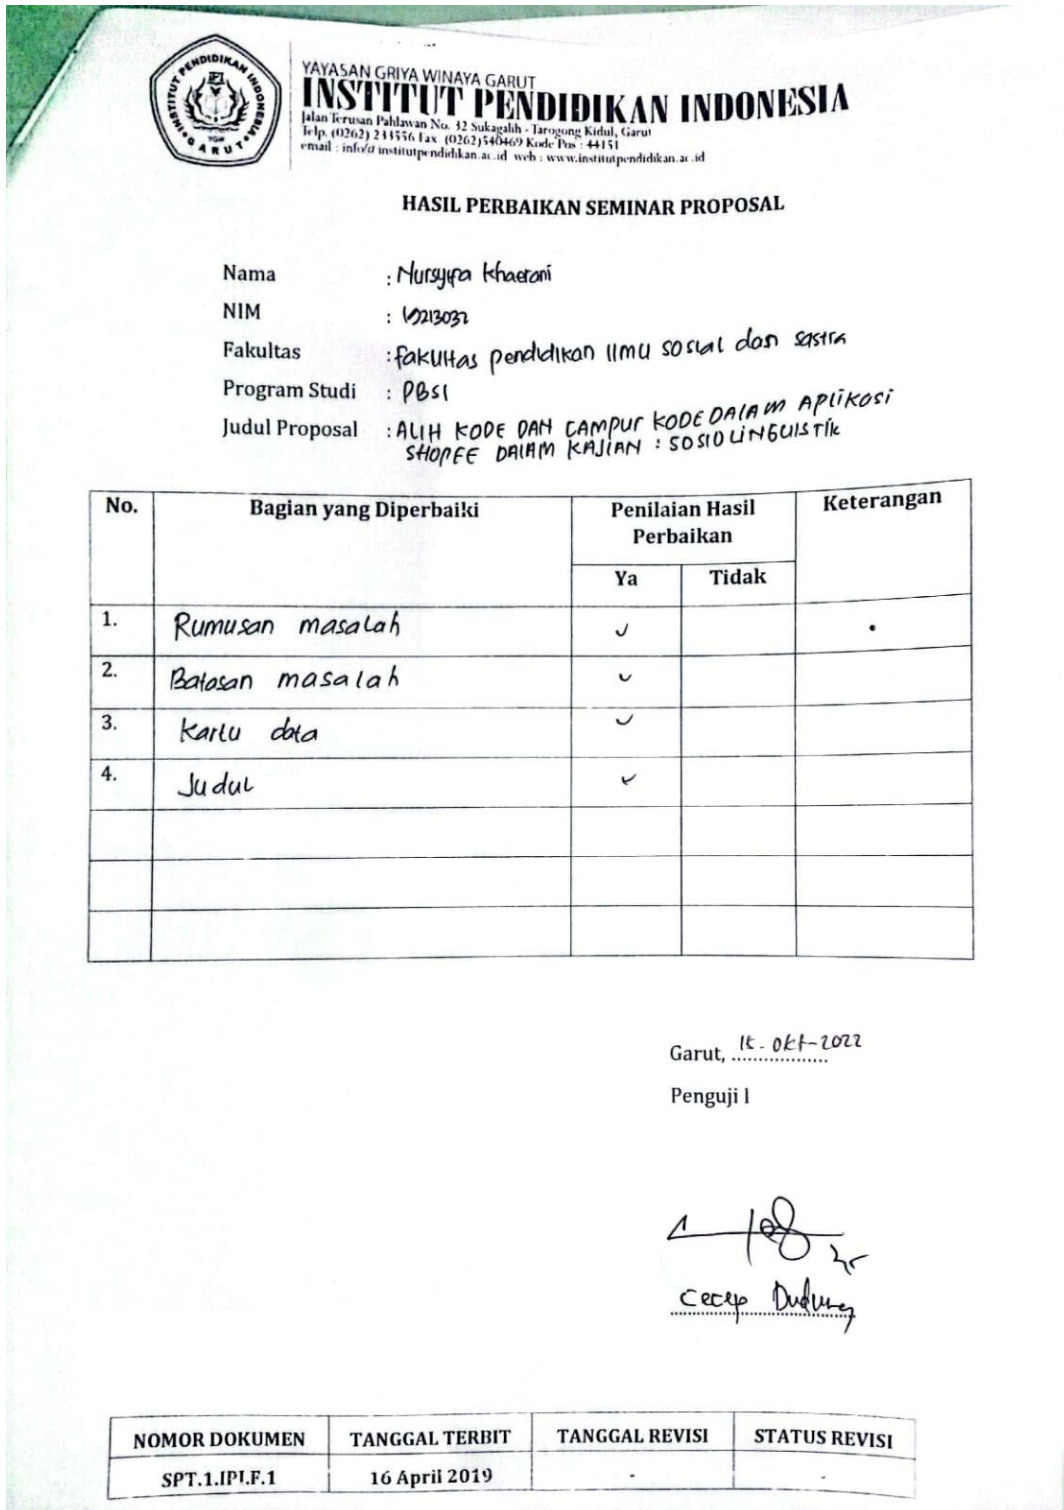 INSTITUT PENDIDIKAN INDONESIA
GARUT
YAYASAN GRIYA WINAYA GARUT
INSTITUT PENDIDIKAN INDONESIA
Jalan Terusan Pahlawan No. 32 Sukagalih - Tarogong Kidul, Garut
Telp. (0262) 233556 Fax (0262)540469 Kode Pos : 44151
email : info@institutpendidikan.ac.id web : www.institutpendidikan.ac.id
HASIL PERBAIKAN SEMINAR PROPOSAL
Nama : Nursyifa Khaerani
NIM :
Fakultas : fakultas pendidikan ilmu sosial dan sastra
Program Studi : PBSI
Judul Proposal : ALIH KODE DAN CAMPUR KODE DALAM APLIKASI
SHOPEE DALAM KAJIAN : SOSIOLINGUISTIK
No. Bagian yang Diperbaiki Penilaian Hasil Perbaikan Keterangan
Ya Tidak
1. Rumusan masalah ✓
2. Batasan masalah ✓
3. Kartu data ✓
4. Judul ✓
Garut, 15 - Okt-2022
Penguji I
Cecep Dudung
NOMOR DOKUMEN TANGGAL TERBIT TANGGAL REVISI STATUS REVISI
SPT.1.IPI.F.1 16 April 2019 - -